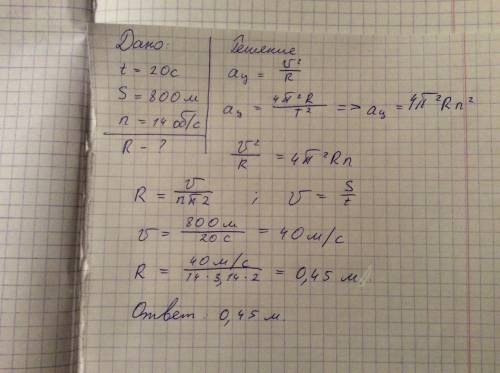 Дано:
t = 20 с
S = 800 м
n = 14 об/с
R - ?
Решение
aц = v²/R
aц = 4π²R/T² => aц = 4π²Rn²
v²/R = 4π²Rn
R = v/nπ2 ; v = S/t
v = 800 м/20 с = 40 м/с
R = 40 м/с/14·3,14·2 = 0,45 м
Ответ: 0,45 м.